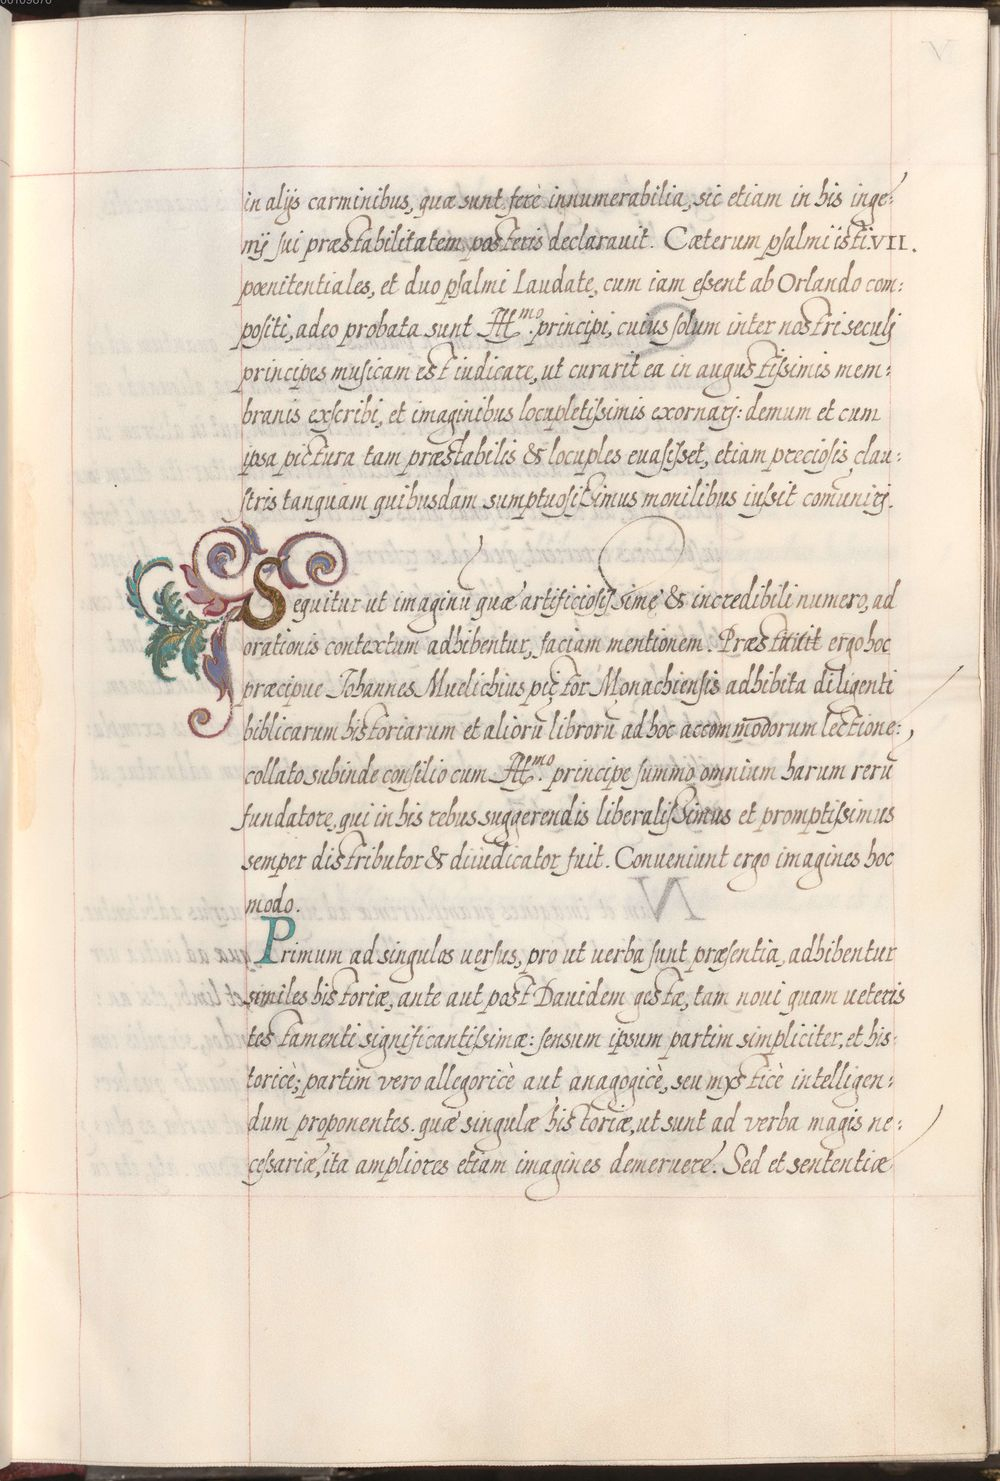 V
in alijs carminibus, quæ sunt ferè innumerabilia, sic etiam in his inge:
nij sui præstabilitatem posteris declarauit. Cæterum psalmi isti VII.
pœnitentiales, et duo psalmi Laudate, cum iam essent ab Orlando com:
positi, adeo probata sunt Ill.mo principi, cuius solum inter nostri seculj
principes musicam est iudicare, ut curarit ea in augustissimis mem:
branis exscribi, et imaginibus locupletissimis exornarj: demum et cum
ipsa pictura tam præstabilis & locuples euasisset, etiam preciosis clau:
stris tanquam quibusdam sumptuosissimus monilibus iussit comunirj.
Sequitur ut imaginū quæ artificiosissimę & incredibili numero, ad
orationis contextum adhibentur, faciam mentionem. Præstitit ergo hoc
præcipue Johannes Muelichius pictor Monachiensis adhibita diligenti
biblicarum historiarum et aliorū librorū ad hoc accommodorum lectione:
collato subinde consilio cum Ill.mo principe summo omnium harum rerū
fundatore, qui in his rebus suggerendis liberalissimus et promptissimus
semper distributor & diiudicator fuit. Conueniunt ergo imagines hoc
modo.
Primum ad singulos uersus, pro ut uerba sunt præsentia, adhibentur
similes historiæ, ante aut post Dauidem gestæ, tam noui quam ueteris
testamenti significantissimæ: sensum ipsum partim simpliciter, et his:
toricè; partim vero allegoricè aut anagogicè, seu mysticè intelligen:
dum proponentes. quæ singulæ historiæ, ut sunt ad verba magis ne:
cessariæ, ita ampliores etiam imagines demeruere. Sed et sententiæ